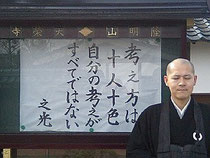 考え方は
十人十色
自分の考えが
すべてではない
之光